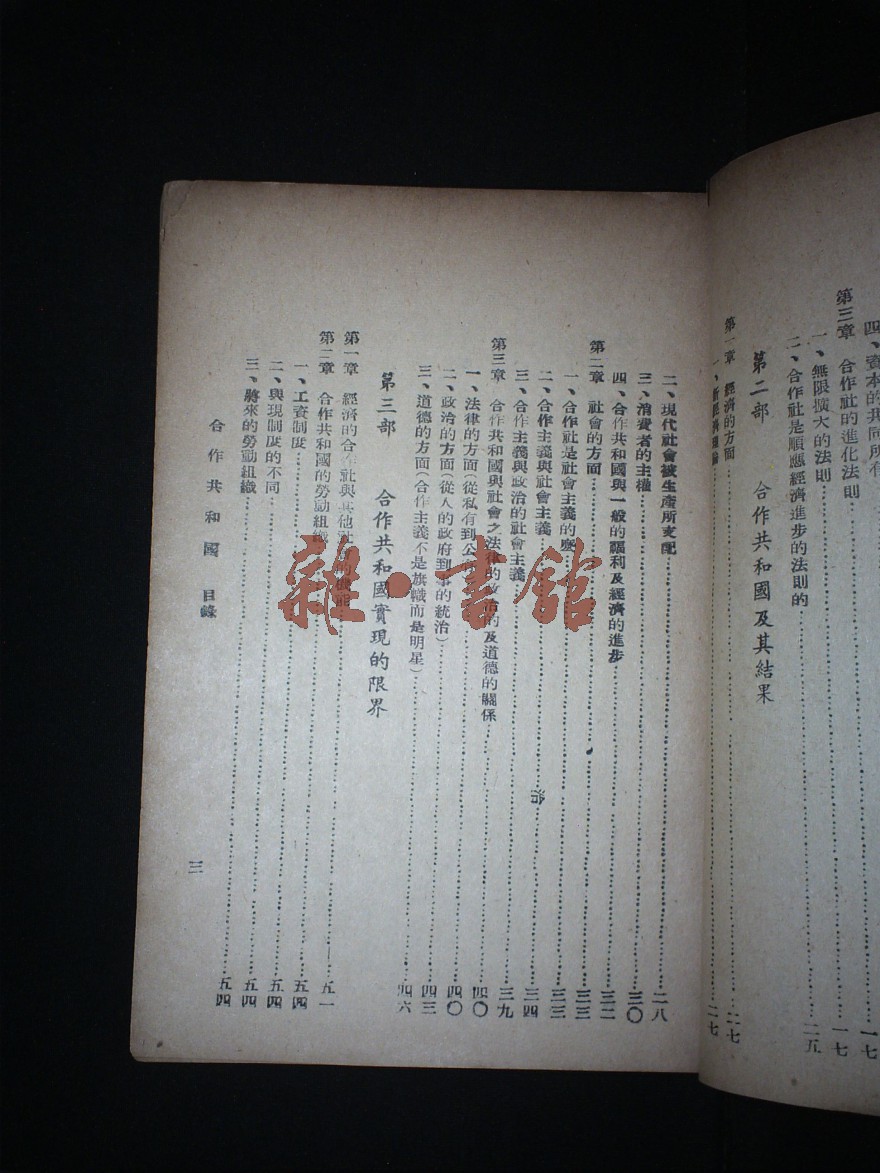 四、資本的共同所有
第三章　合作社的進化法則……一七
一、無限擴大的法則……一七
二、合作社是順應經濟進步的法則的……二五
第二部　合作共和國及其結果
第一章　經濟的方面……二七
一、新經濟理論……二七
二、現代社會被生產所支配……二八
三、消費者的主權……三〇
四、合作共和國與一般的福利及經濟的進步……三二
第二章　社會的方面……三三
一、合作社是社會主義的麼……三三
二、合作主義與社會主義……治……三四
三、合作主義與政治的社會主義……三九
第三章　合作共和國與社會之法律的政治的及道德的關係……四〇
一、法律的方面（從私有到公有）……四〇
二、政治的方面（從人的政府到事的統治）……四三
三、道德的方面（合作主義不是旗幟而是明星）……四六
第三部　合作共和國實現的限界
第一章　經濟的合作社與其他社會的……五一
第二章　合作共和國的勞動組織……五四
一、工資制度……五四
二、與現制度的不同……五四
三、將來的勞動組織……五四
合作共和國　目錄
三
雜·書館